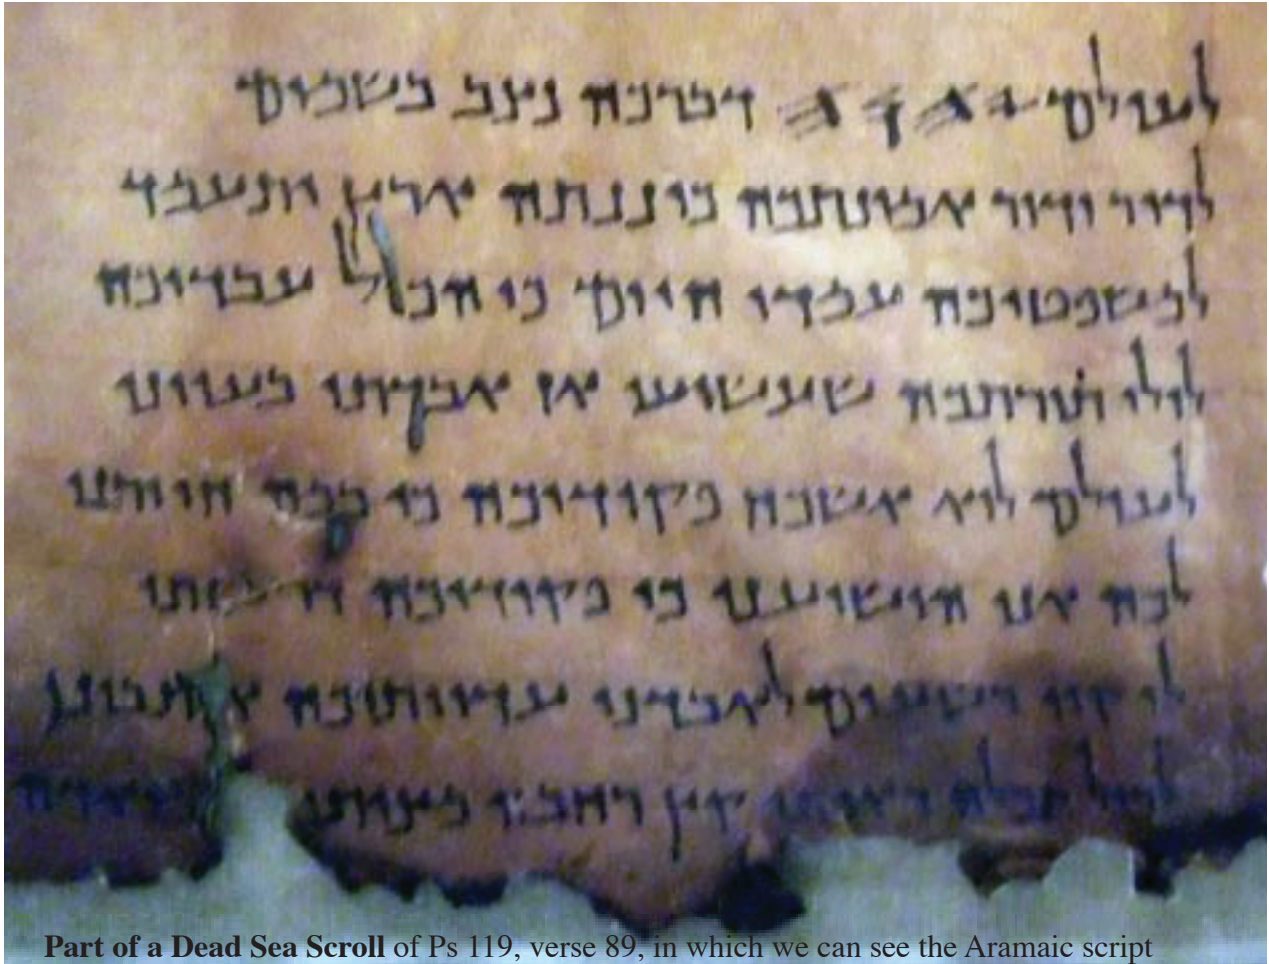 לעולם 𐤉𐤄𐤅𐤄 דברכה נצב בשמים
לדור ודור אמונתכה כוננתה ארץ ותעמד
למשפטיכה עמדו היום כי הכול עבדיכה
לולי תורתכה שעשועי אז אבדתי בעווני
לעולם לוא אשכח פקודיכה כי במה חייתני
לכה אני הושיעני כי פקודיכה דרשתי
לי קוו רשעים לאבדני עדוותיכה אתבונן
לכול תכלה ראיתי קץ רחבה
Part of a Dead Sea Scroll of Ps 119, verse 89, in which we can see the Aramaic script